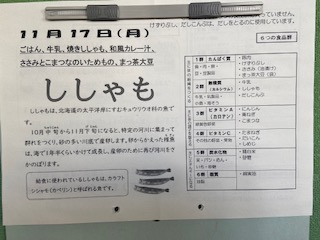 っていません。
けずりぶし、だしこんぶは、だしをとるのに使用しています。
11月17日(月)
ごはん、牛乳、焼きししゃも、和風カレー汁、
ささみとこまつなのいためもの、まっ茶大豆
ししゃも
ししゃもは、北海道の太平洋岸にすむキュウリウオ科の魚で
す。
10月中旬から11月下旬になると、特定の河川に集まって
群れをつくり、砂の多い川底で産卵します。卵からかえった稚魚
は、海で1年半くらいかけて成長し、産卵のために再び河川をさ
かのぼります。
給食に使われているししゃもは、カラフト
シシャモ(カペリン)と呼ばれる魚です。
6つの食品群
1群 たんぱく質
魚・肉・卵・
豆・豆製品
・豚肉
・けずりぶし
・ささみ
・まっ茶大豆
2群 無機質
(カルシウム)
・牛乳
・ししゃも
・だしこんぶ
3群 ビタミンA
(カロテン)
・にんじん
・青ねぎ
・こまつな
4群 ビタミンC
・たまねぎ
・だいこん
・しめじ
5群 炭水化物
・精白米
・砂糖
6群 脂質